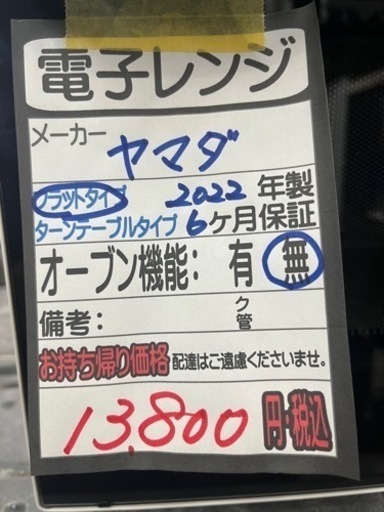 電子レンジ
メーカー
ヤマダ
フラットタイプ 2022年製
ターンテーブルタイプ 6ケ月保証
オーブン機能: 有 無
備考: ク管
お持ち帰り価格 配達はご遠慮くださいませ。
13,800 円・税込